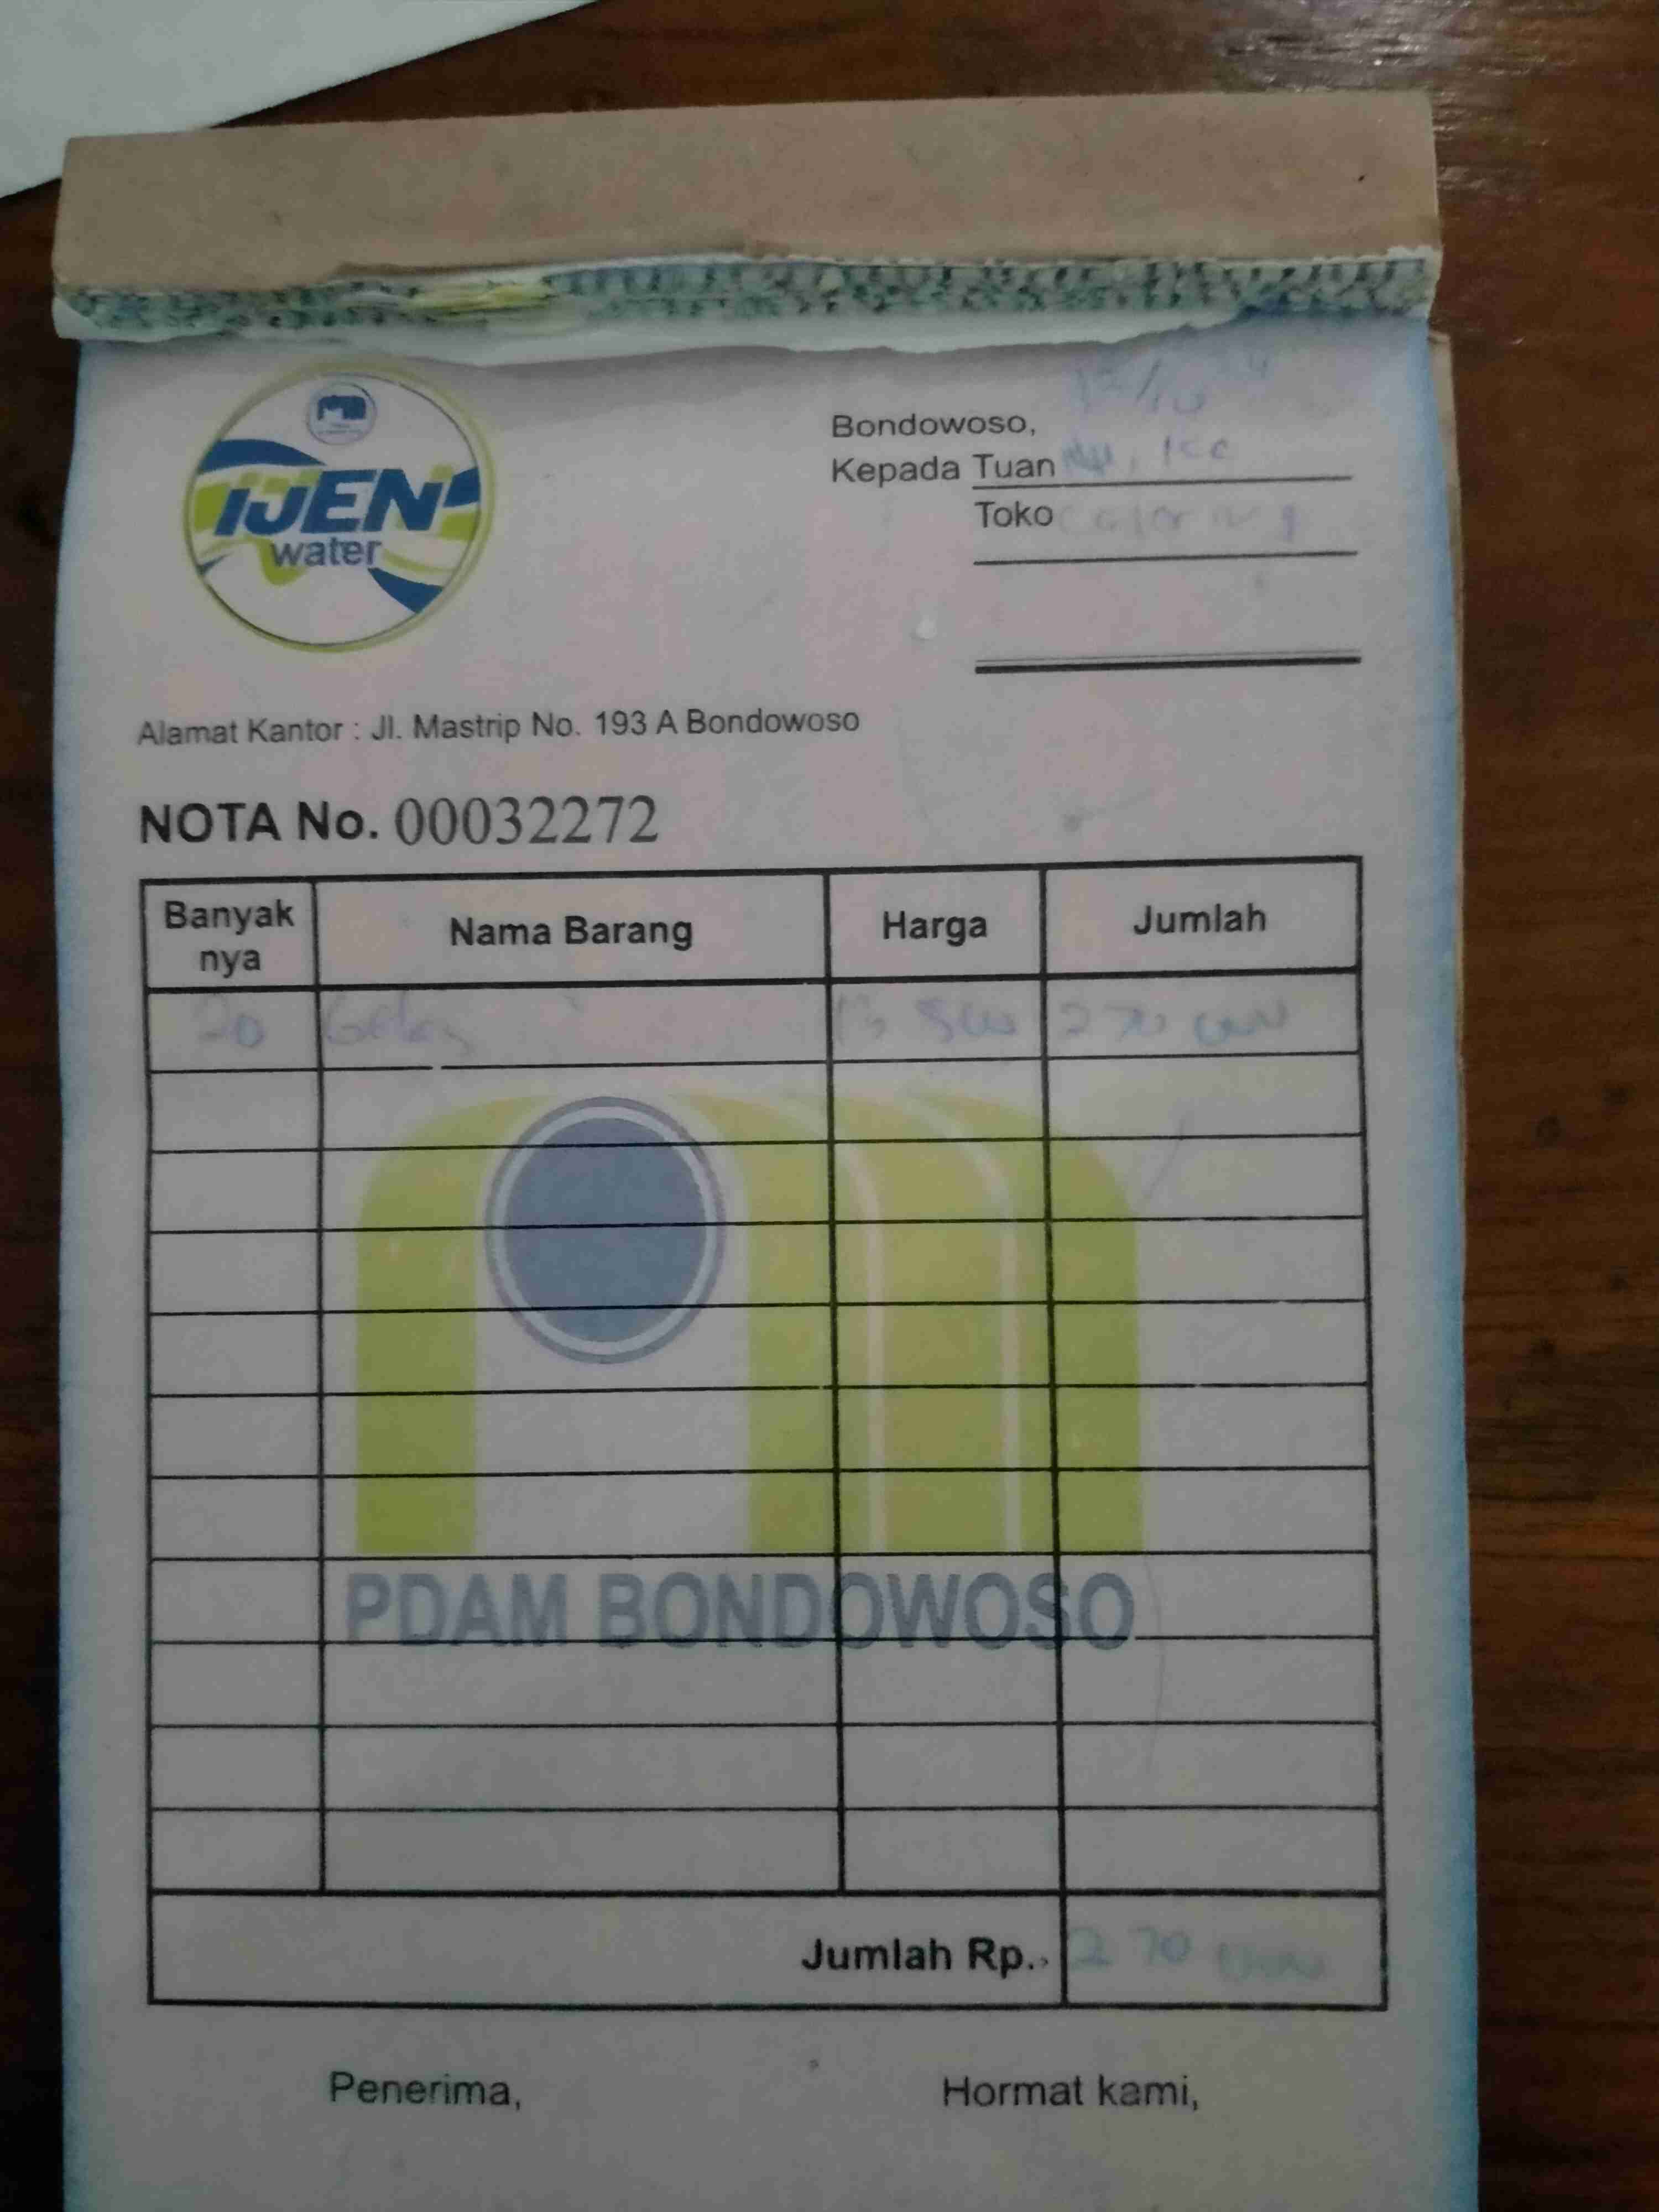 IJEN
water
Bondowoso, 12/10
Kepada Tuan
Toko
Alamat Kantor : Jl. Mastrip No. 193 A Bondowoso
NOTA No. 00032272
Banyak nya Nama Barang Harga Jumlah
20 Gelas 13 500 270 000
PDAM BONDOWOSO
Jumlah Rp., 270 000
Penerima, Hormat kami,